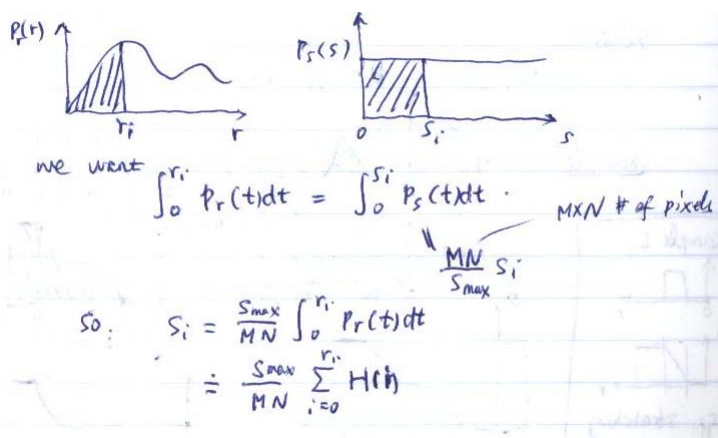 Pr(r)
ri
r
Ps(s)
0
si
s
we want
∫₀^{ri} Pr(t)dt = ∫₀^{si} Ps(t)dt .
MXN # of pixels
MN/Smax si
So: si = Smax/MN ∫₀^{ri} Pr(t)dt
≐ Smax/MN Σ_{i=0}^{ri} H(i)